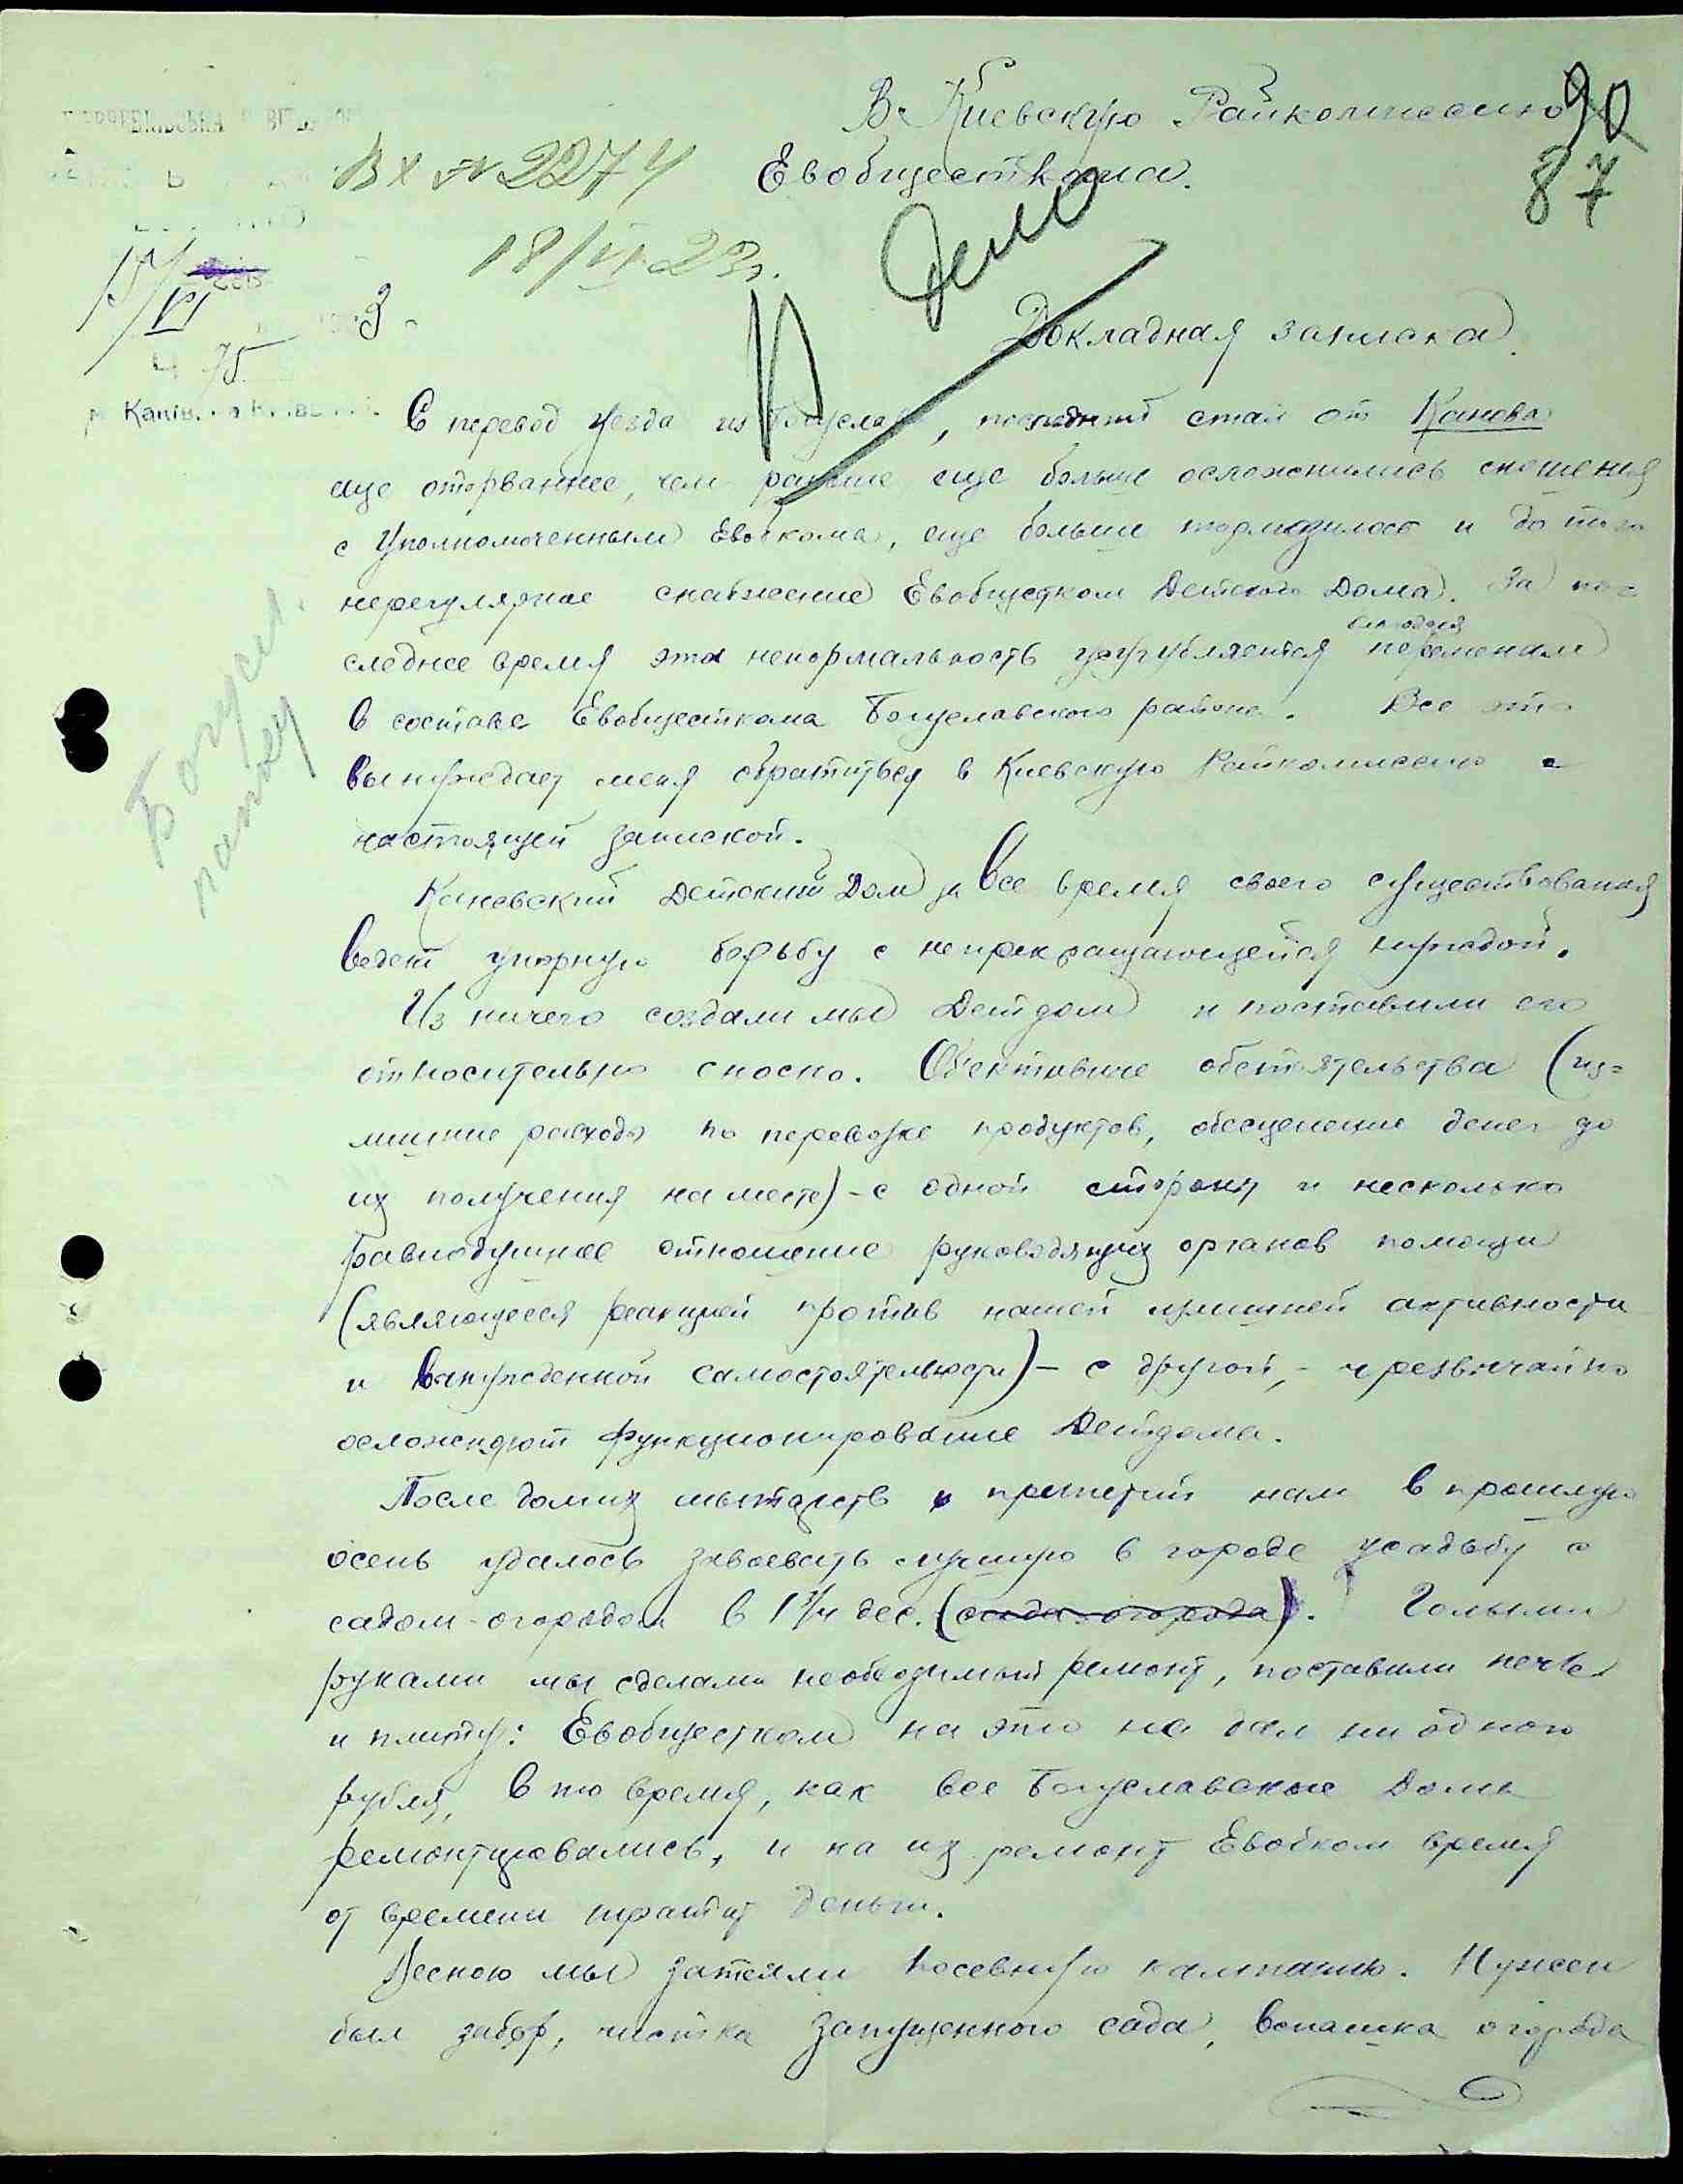 В Киевскую Райкомиссию
90
87
Евобщесткома.
Вх № 2274
18/VI-23г.
В дело
15/VI
3
75
м. Канів,
Докладная записка
С перевод уезда из Богуслав, последний стал от Канева
еще оторваннее, чем раньше еще больше осложнились сношения
с Уполномоченным Евобкома, еще больше тормозилось и до того
нерегулярное снабжение Евобщестком Детского Дома. За по-
следнее время эта ненормальность усугубляется благодаря переменам
в составе Евобщесткома Богуславского района. Все это
вынуждает меня обратиться в Киевскую Райкомиссию с
настоящей запиской.
Богусл.
Каневский Детский Дом за все время своего существования
ведет упорную борьбу с непрекращающейся нуждой.
Из ничего создали мы Детдом и поставили его
относительно сносно. Объективные обстоятельства (из-
лишние расходы по перевозке продуктов, обесценение денег до
их получения на месте) - с одной стороны и несколько
равнодушное отношение руководящих органов помощи
(являющееся реакцией против нашей излишней активности
и вынужденной самостоятельности) - с другой, - чрезвычайно
осложняют функционирование Детдома.
После долгих мытарств и нам в прошлую
осень удалось завоевать лучшую в городе усадьбу с
садом-огородом в 1 3/4 дес. (сада-огорода). Голыми
руками мы сделали необходимый ремонт, поставили печь
и плиту: Евобщестком на это не дал ни одного
рубля, в то время, как все Богуславские Дома
ремонтировались, и на их ремонт Евобком время
от времени тратит деньги.
Весною мы затеяли посевную кампанию. Нужен
был забор, чистка запущенного сада, вспашка огорода